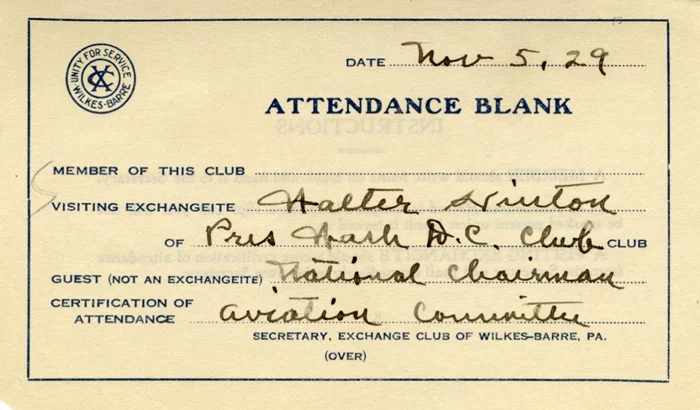 UNITY FOR SERVICE
WILKES-BARRE
DATE Nov 5, 29
ATTENDANCE BLANK
MEMBER OF THIS CLUB
VISITING EXCHANGEITE Walter Hinton
OF Pres Wash D.C. Club CLUB
GUEST (NOT AN EXCHANGEITE) National Chairman
CERTIFICATION OF
ATTENDANCE Aviation Committee
SECRETARY, EXCHANGE CLUB OF WILKES-BARRE, PA.
(OVER)